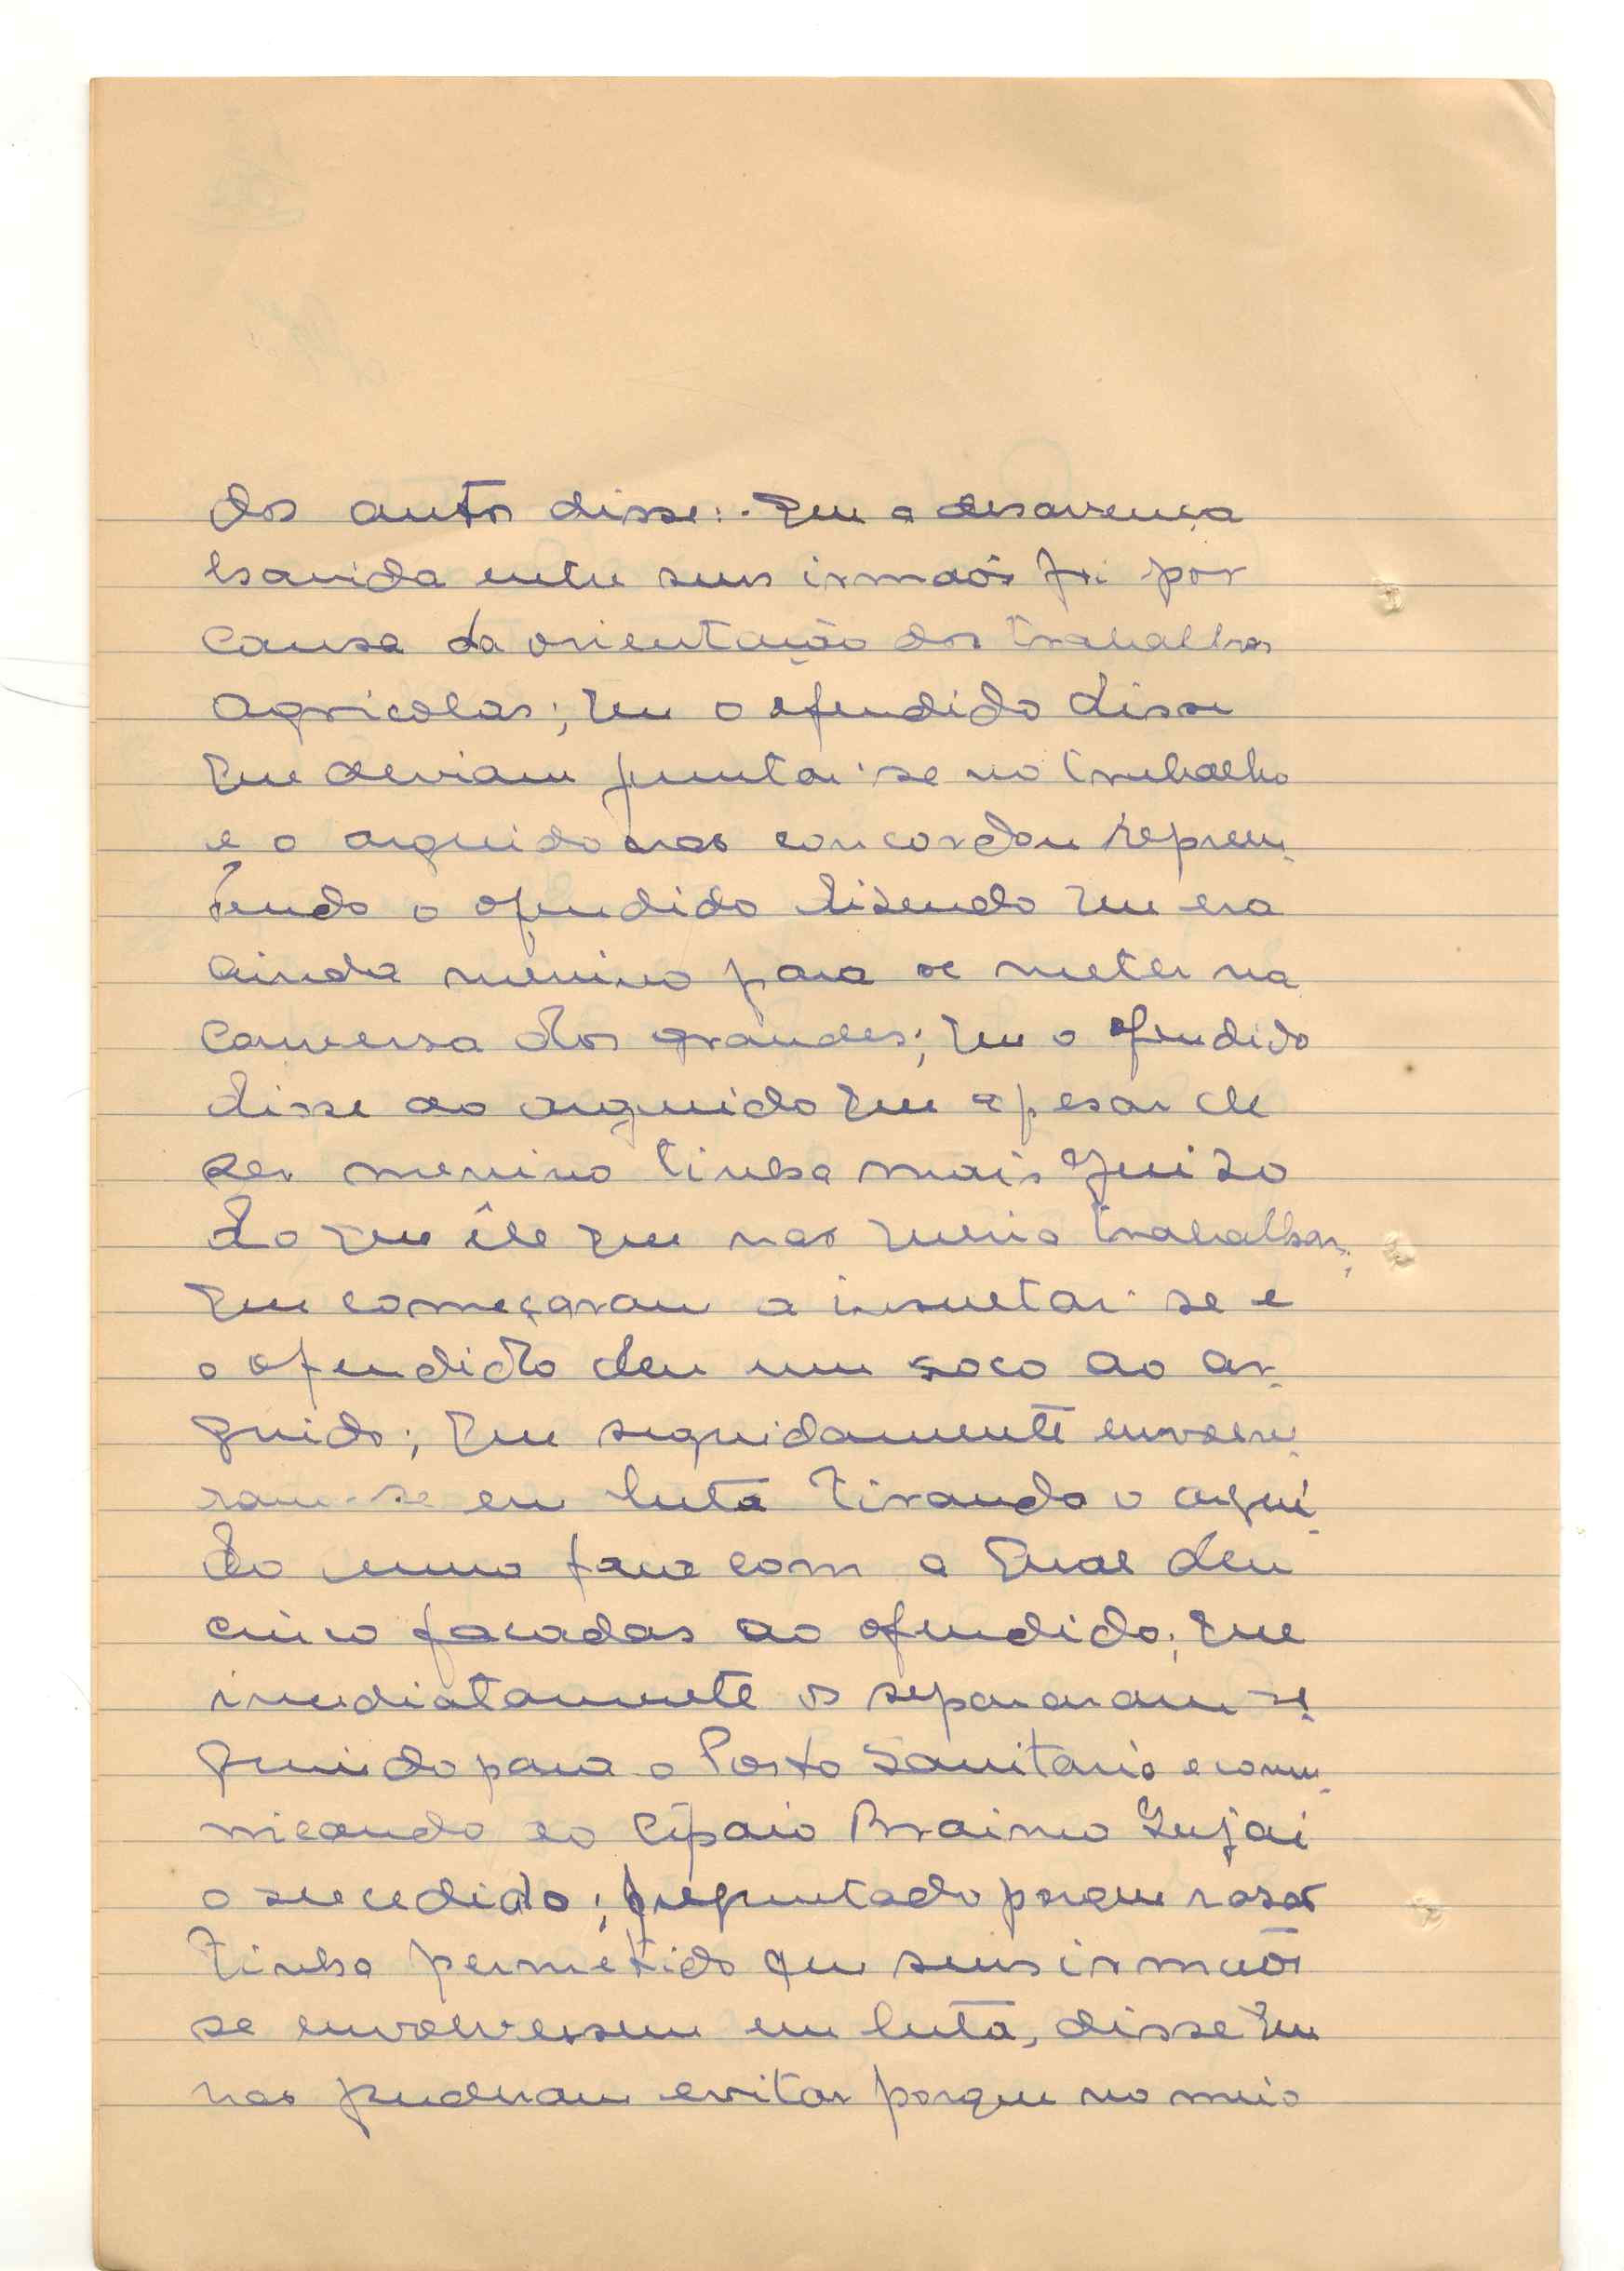 dos autos disse:. Que a desavença
havida entre seus irmaõs foi por
causa da orientação dos trabalhos
agricolas; que o ofendido disse
que deviam juntar-se no trabalho
e o arguido nao concordou repreen-
dendo o ofendido disendo que era
ainda menino para se meter na
conversa dos grandes; que o ofendido
disse ao arguido que apesar de
ser menino tinha mais juizo
do que êle que nao queria trabalhar;
que começaram a insultar-se e
o ofendido deu um soco ao ar-
guido; que seguidamente envolve-
ram-se em luta tirando o argui-
do uma faca com a qual deu
cinco facadas ao ofendido; que
imediatamente os separaram se-
guindo para o Posto Sanitario e comu-
nicando ao Cipaio Braimo Injai
o sucedido; preguntado porque rasaõ
tinha permetido que seus irmaõs
se envolvessem em luta, disse que
nao puderam evitar porque no meio